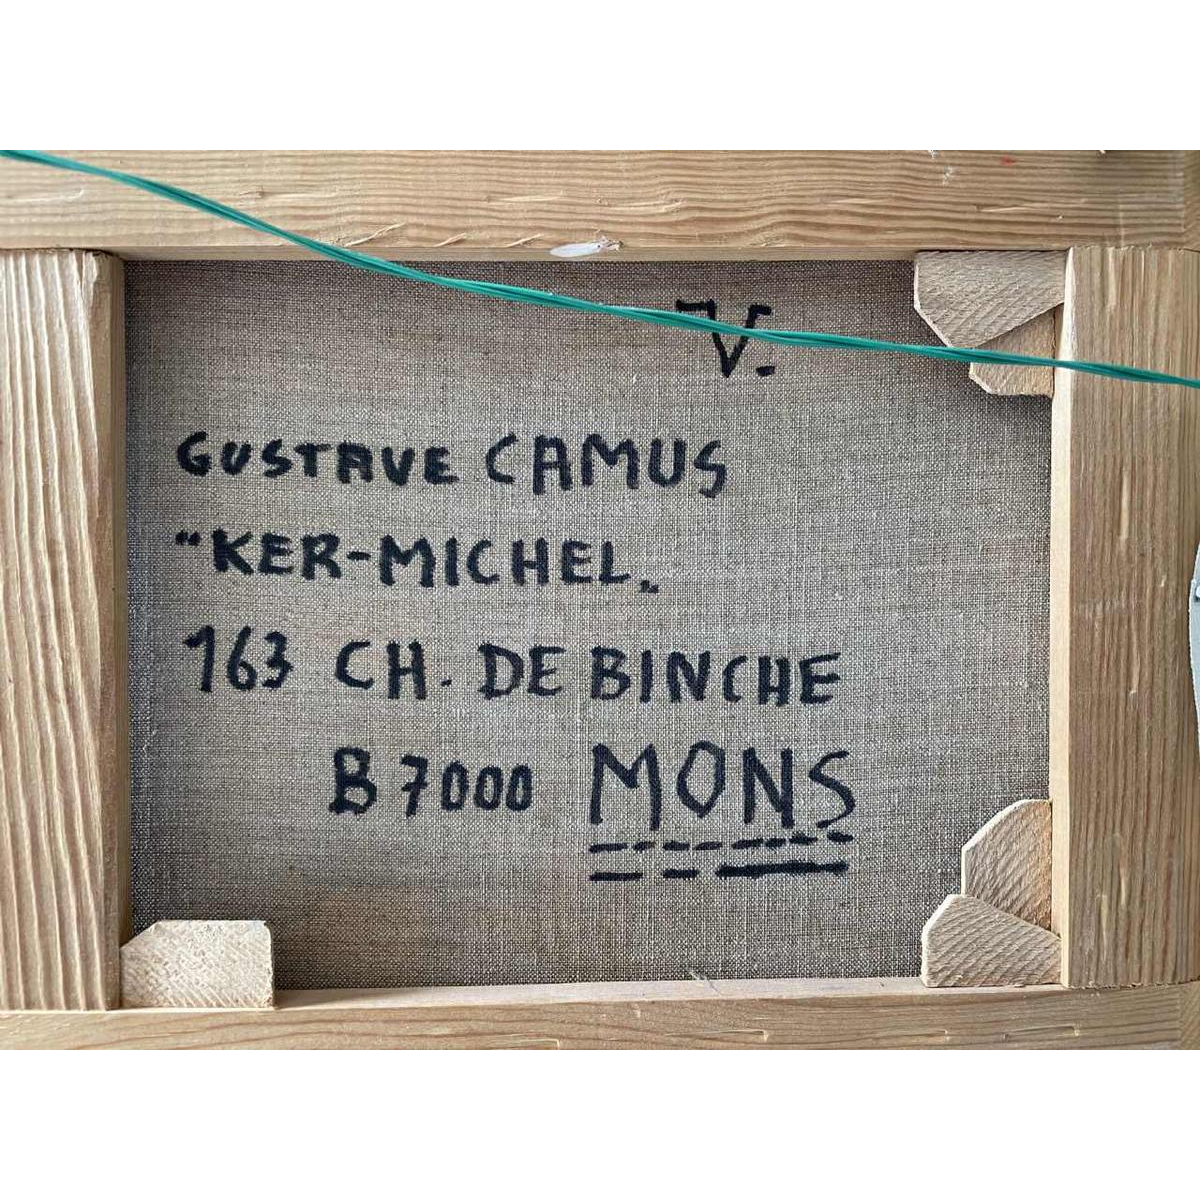 V.
GUSTAVE CAMUS
"KER-MICHEL„
163 CH. DE BINCHE
B 7000 MONS